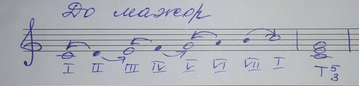 До мажор
I II III IV V VI VII I T5
3